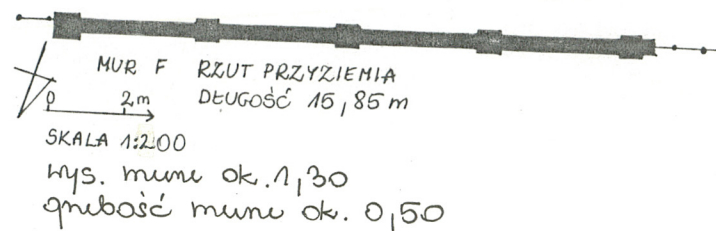 MUR F RZUT PRZYZIEMIA
DŁUGOŚĆ 15,85 m
0 2m
SKALA 1:200
wys. muru ok. 1,30
grubość muru ok. 0,50